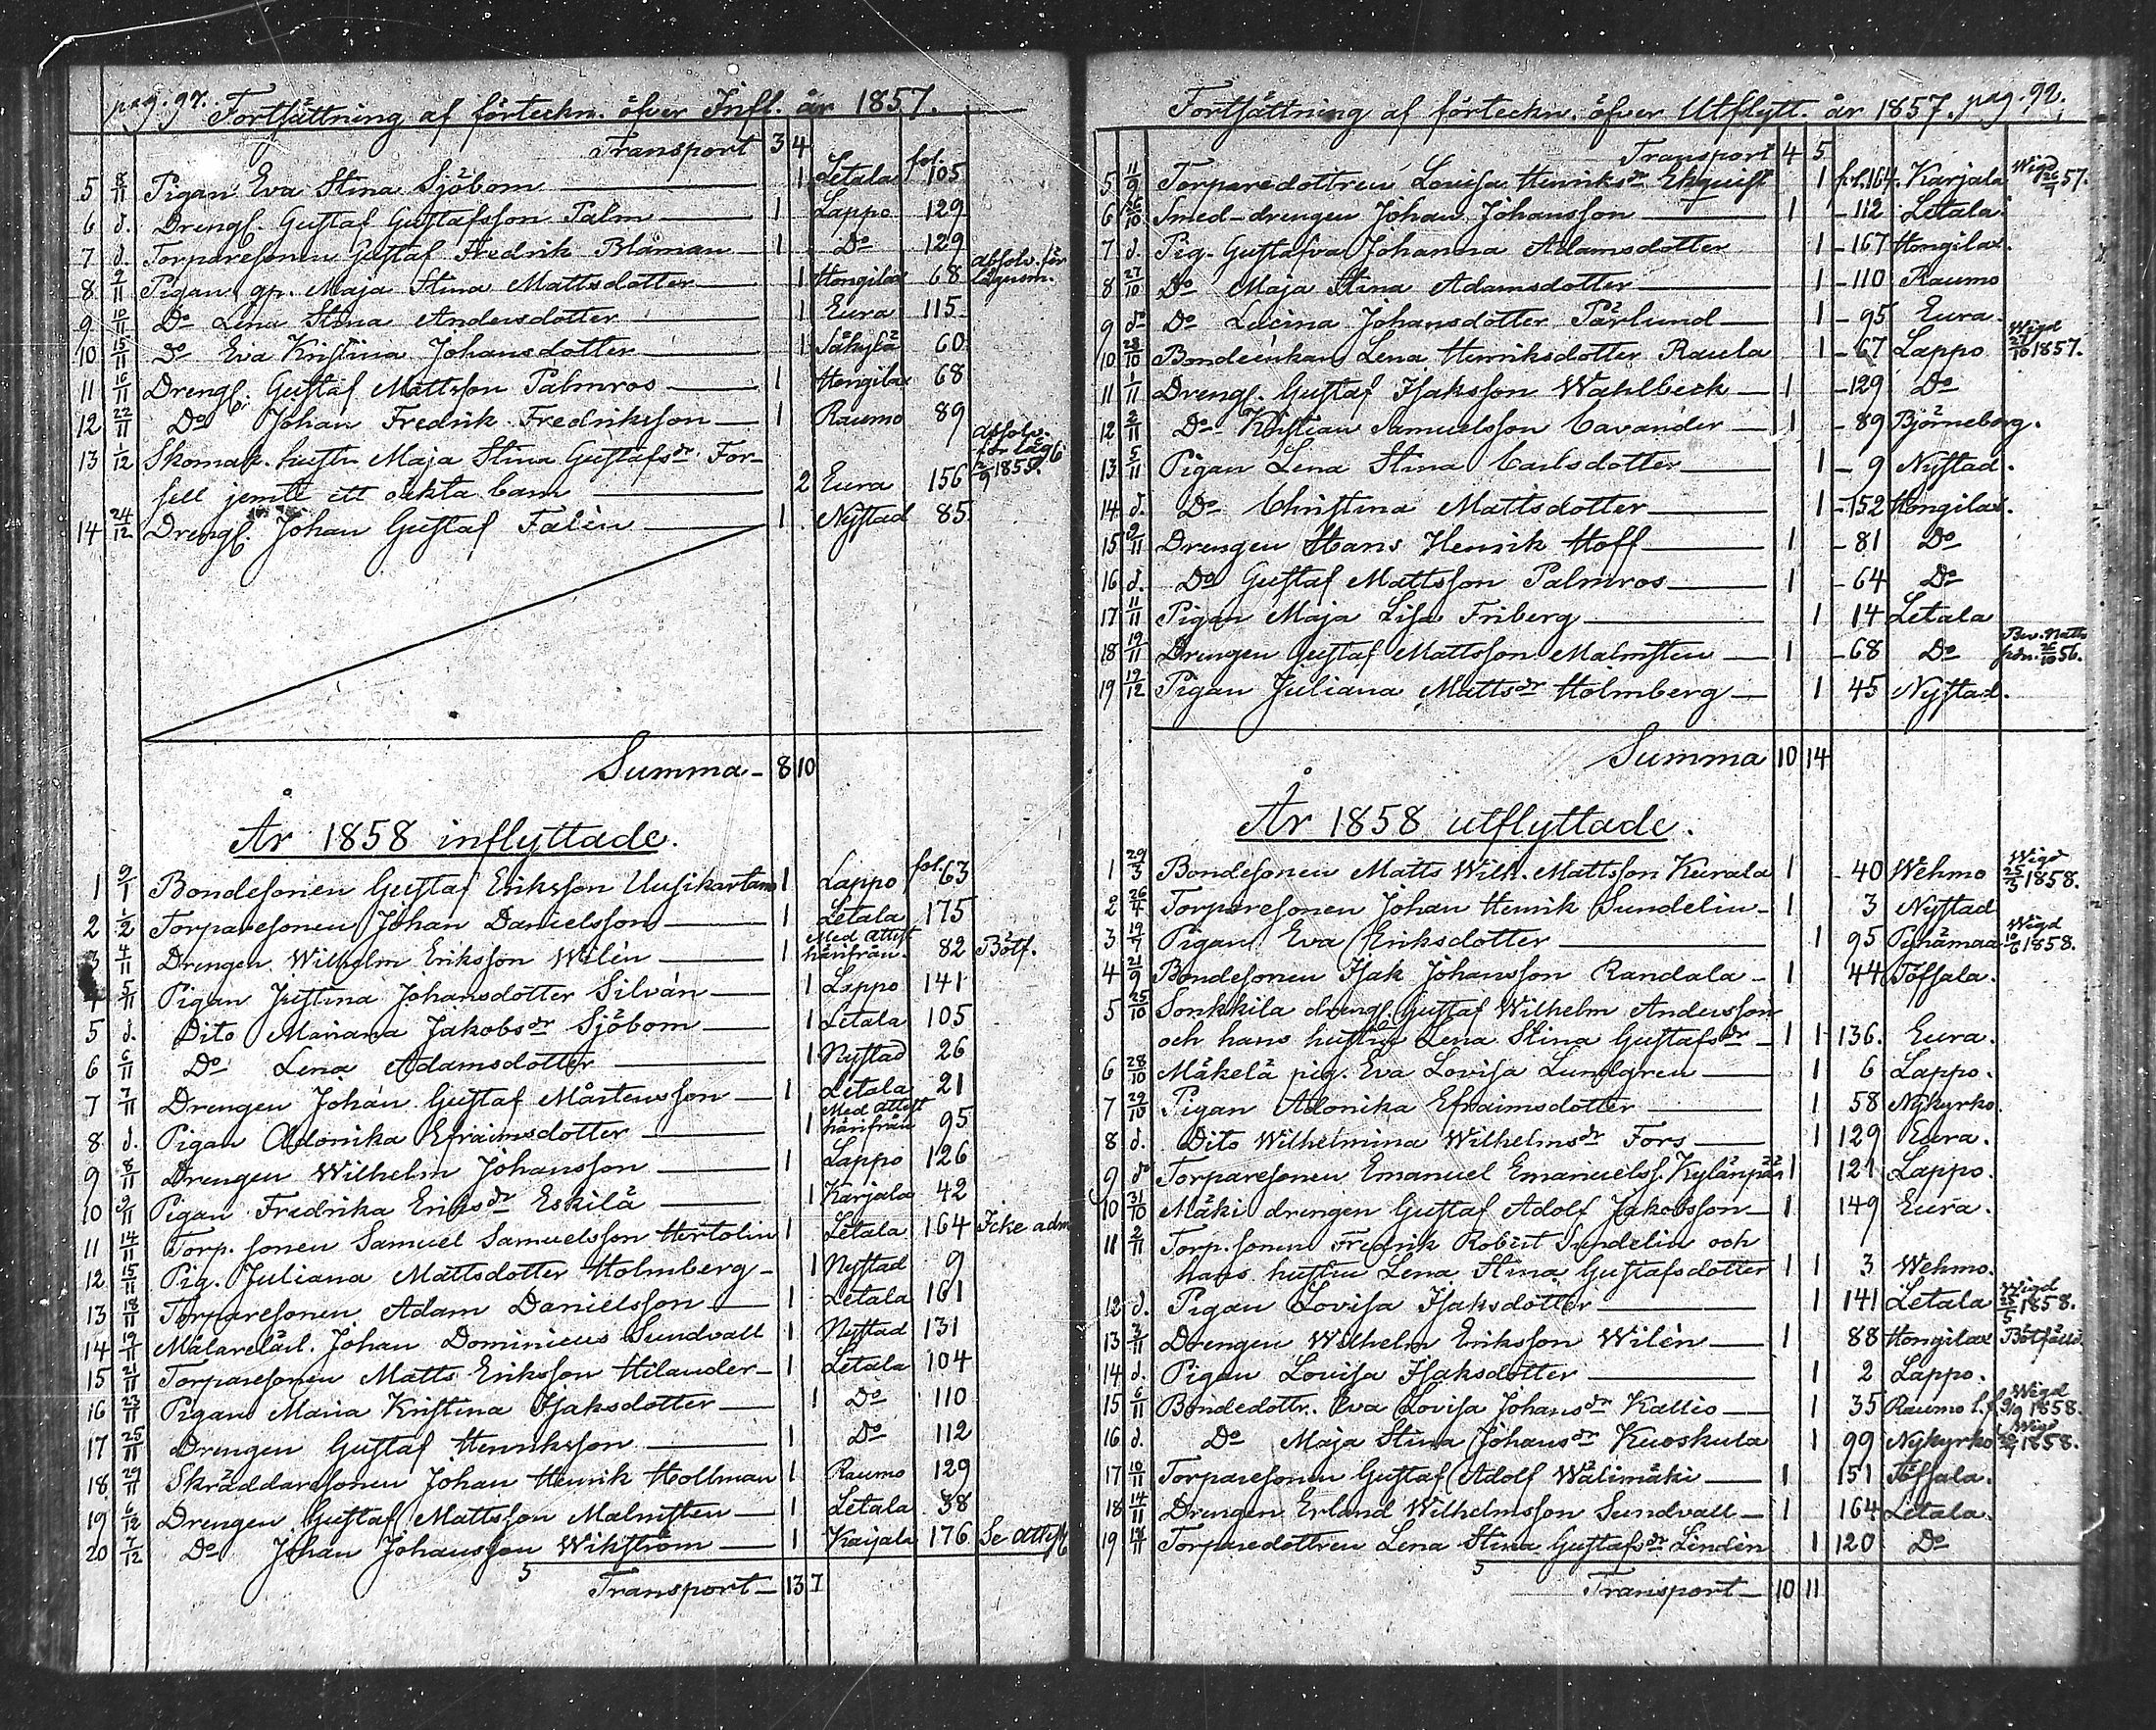 pag. 97. Fortsättning af förteckn. öfver Infl. år 1857.
Transport 3 4 fol.
5 8/11 Pigan Eva Stina Sjöbom 1 Letala 105
6 d. Drengs. Gustaf Gustafsson Palm 1 Lappo 129
7 d. Torparesonen Gustaf Fredrik Blåman 1 Do 129
8 9/11 Pigan Maja Stina Mattsdotter 1 Hongilax 68 absolv. för lägersm.
9 10/11 Do Lena Stina Andersdotter 1 Eura 115
10 15/11 Do Eva Kristina Johansdotter 1 Säkylä 60
11 16/11 Drengs. Gustaf Mattsson Palmros 1 Hongilax 68
12 22/11 Do Johan Fredrik Fredriksson 1 Raumo 89
13 1/12 Skomak. hustr. Maja Stina Gustafsdr Fors-
sell jemte ett oäkta barn 2 Eura 156 absolv. för 1855.
14 24/12 Drengs. Johan Gustaf Falèn 1 Nystad 85
Summa 8 10
År 1858 inflyttade.
1 9/1 Bondesonen Gustaf Eriksson Uusikartano 1 Lappo fol. 63
2 1/2 Torparesonen Johan Danielsson 1 Letala 175
3 4/11 Drengen Wilhelm Eriksson Wilèn 1 Med attest härifrån. 82 Bötf.
4 5/11 Pigan Justina Johansdotter Silván 1 Lappo 141
5 d. Dito Mariana Jakobsdr Sjöbom 1 Letala 105
6 6/11 Do Lena Adamsdotter 1 Nystad 26
7 7/11 Drengen Johan Gustaf Mårtensson 1 Letala 21
8 d. Pigan Adonika Efraimsdotter 1 Med attest härifrån 95
9 8/11 Drengen Wilhelm Johansson 1 Lappo 126
10 9/11 Pigan Fredrika Eriksdr Eskilä 1 Karjala 42
11 14/11 Torp. sonen Samuel Samuelsson Hertolin 1 Letala 164 Icke adm
12 15/11 Pig. Juliana Mattsdotter Holmberg 1 Nystad 9
13 18/11 Torparesonen Adam Danielsson 1 Letala 161
14 19/11 Målarelärl. Johan Dominicus Sundvall 1 Nystad 131
15 21/11 Torparesonen Matts Eriksson Hilander 1 Letala 104
16 23/11 Pigan Maria Kristina Isaksdotter 1 Do 110
17 25/11 Drengen Gustaf Henriksson 1 Do 112
18 29/11 Skräddaresonen Johan Henrik Hollman 1 Raumo 129
19 6/12 Drengen Gustaf Mattsson Malmsten 1 Letala 38
20 7/12 Do Johan Johansson Wikström 1 Karjala 176 Se attest
Transport 13 7
Fortsättning af förteckn. öfver Utflytt. år 1857. pag. 92.
Transport 4 5
5 11/9 Torparedottren Lovisa Henriksdr Ekquist 1 fol. 164 Karjala Wigd 57.
6 26/10 Smed-drengen Johan Johansson 1 112 Letala
7 d. Pig. Gustafva Johanna Adamsdotter 1 167 Hongilax.
8 27/10 Do Maja Stina Adamsdotter 1 110 Raumo
9 do Do Lucina Johansdotter Pärlund 1 95 Eura
10 28/10 Bondeenkan Lena Henriksdotter Raula 1 67 Lappo Wigd 1857.
11 1/11 Drengs. Gustaf Isaksson Wahlbeck 1 129 Do
12 2/11 Do Kristian Samuelsson Cavander 1 89 Björneborg.
13 5/11 Pigan Lena Stina Carlsdotter 1 9 Nystad.
14 d. Do Christina Mattsdotter 1 152 Hongilax.
15 9/11 Drengen Hans Henrik Hoff 1 81 Do
16 d. Do Gustaf Mattsson Palmros 1 64 Do
17 11/11 Pigan Maja Lisa Friberg 1 14 Letala
18 19/11 Drengen Gustaf Mattsson Malmsten 1 68 Do Bev. Natt 56.
19 19/12 Pigan Juliana Mattsdr Holmberg 1 45 Nystad.
Summa 10 14
År 1858 utflyttade.
1 29/3 Bondesonen Matts Wilh. Mattsson Keirala 1 40 Wehmo Wigd 25/3 1858.
2 26/4 Torparesonen Johan Henrik Sundelin 1 3 Nystad
3 19/7 Pigan Eva Eriksdotter 1 95 Pyhämaa Wigd 1858.
4 21/9 Bondesonen Isak Johansson Randala 1 44 Töfsala.
5 25/10 Sonkkila drengs. Gustaf Wilhelm Andersson
och hans hustru Lena Stina Gustafsdr 1 1 136. Eura.
6 28/10 Mäkelä pig. Eva Lovisa Lundgren 1 6 Lappo.
7 29/10 Pigan Adonika Efraimsdotter 1 58 Nykyrko.
8 d. Dito Wilhelmina Wilhelmsdr Fors 1 129 Eura.
9 do Torparesonen Emanuel Emanuelss. Kylänpää 1 121 Lappo.
10 31/10 Mäki drengen Gustaf Adolf Jakobsson 1 149 Eura.
11 2/11 Torp. sonen Fredrik Robert Sundelin och
hans hustru Lena Stina Gustafsdotter 1 1 3 Wehmo.
12 d. Pigan Lovisa Isaksdotter 1 141 Letala Wigd 1858.
13 3/11 Drengen Wilhelm Eriksson Wilèn 1 88 Hongilax Bötfälld.
14 d. Pigan Lovisa Isaksdotter 1 2 Lappo.
15 6/11 Bondedottr. Eva Lovisa Johansdr Kallio 1 35 Raumo l.f. Wigd 1858.
16 d. Do Maja Stina Johansdr Kuoskula 1 99 Nykyrko Wigd 1858.
17 10/11 Torparesonen Gustaf Adolf Wälimäki 1 151 Töfsala.
18 14/11 Drengen Erland Wilhelmsson Sundvall 1 164 Letala.
19 18/11 Torparedottren Lena Stina Gustafsdr Lindèn 1 120 Do
Transport 10 11